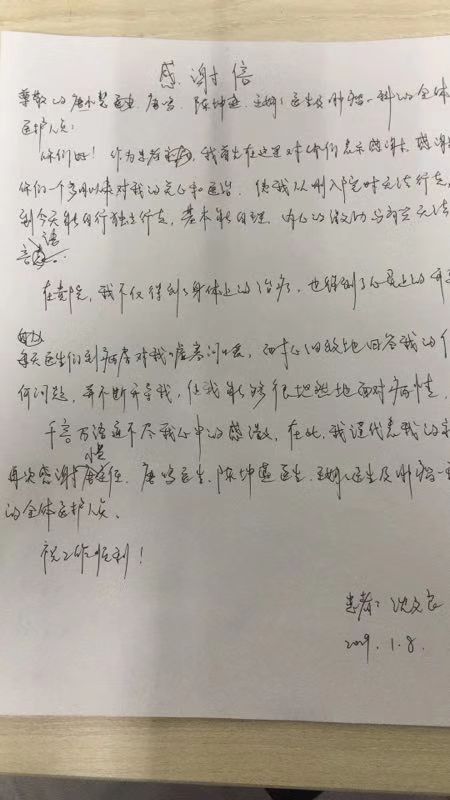 感谢信
尊敬的唐小慧医生、唐鸣、陈坤 医生及肿瘤一科的全体
医护人员:
你们好!作为患者 ,我首先在这里对你们表示感谢,感谢
你们一个多月以来对我的关心和医治。使我从刚入院时无法行走,
到今天能自行独立行走,基本能自理。内心的激动与 无法
言语
在贵院,我不仅得到了身体上的治疗,也得到了心灵上的开
每天医生们到病房对我嘘寒问暖,耐心细致地回答我的任
何问题,并不断开导我,使我能够很坦然地面对病情。
千言万语道不尽我心中的感激,在此,我谨代表我的家
再次感谢唐 主任、唐鸣医生、陈坤 医生、 医生及肿瘤一
的全体医护人员。
祝工作顺利!
患者:沈文良
1.8.